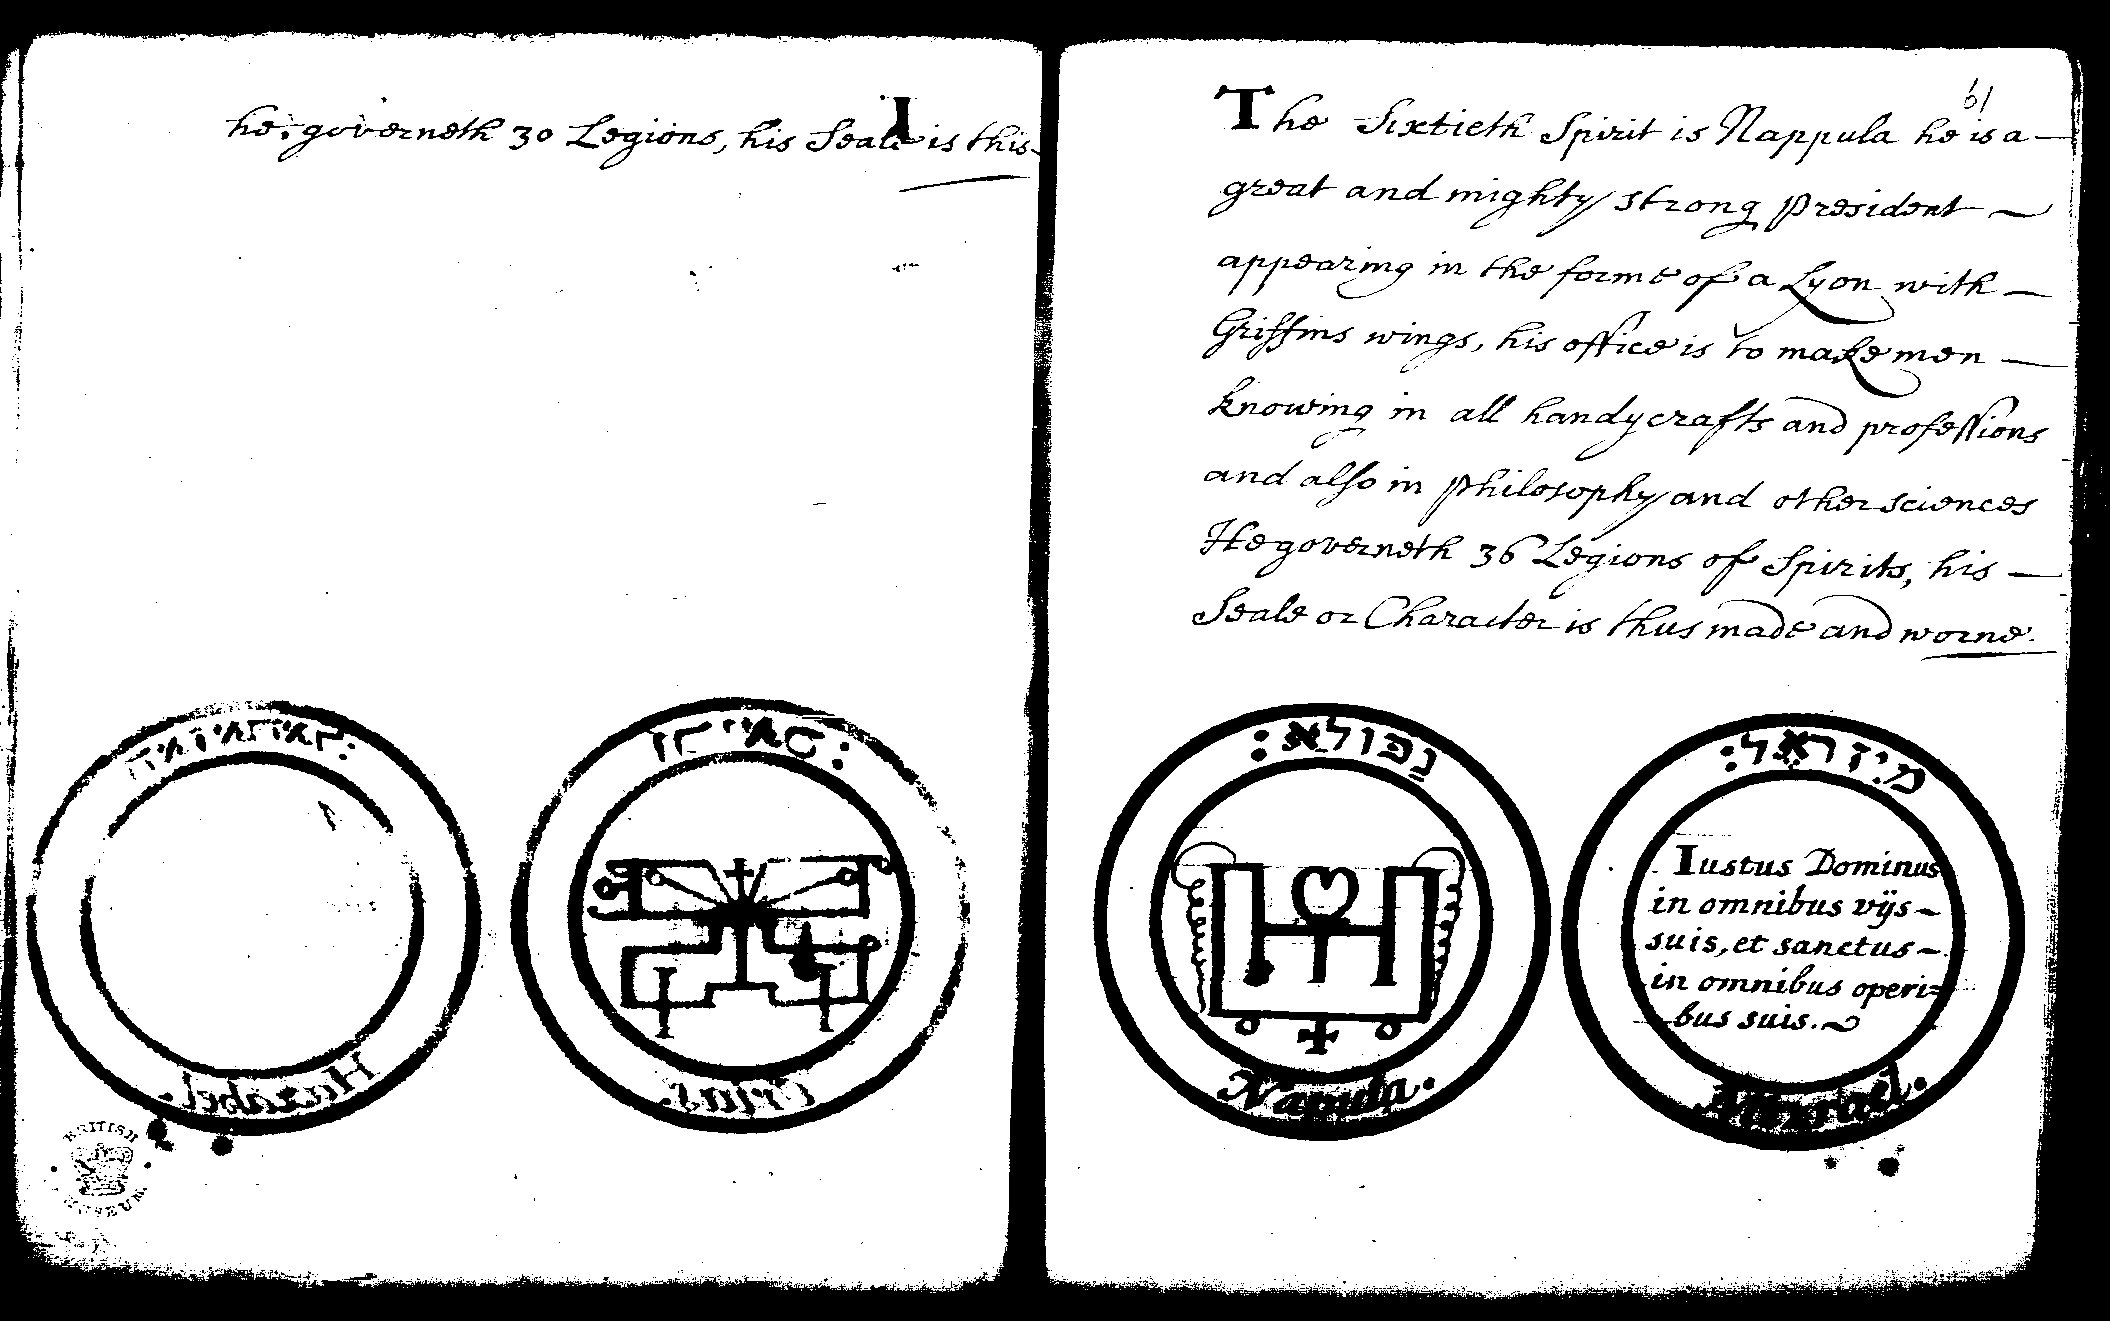 he governeth 30 Legions, his Seale is this
61
The Sixtieth Spirit is Nappula he is a
great and mighty strong President
appearing in the forme of a Lyon with
Griffins wings, his office is to make men
knowing in all handycrafts and professions
and also in philosophy and other sciences
He governeth 36 Legions of Spirits, his
Seale or Character is thus made and worne.
Hazahel.
Orius.
BRITISH
MUSEUM
נפולא:
Napula.
מיזראל:
Iustus Dominus
in omnibus vijs
suis, et sanctus
in omnibus operi=
bus suis.